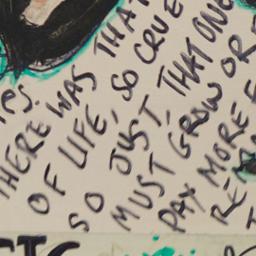 THERE WAS THAT
OF LIFE, SO CRUE
SO JUST, THAT ONE
MUST GROW OR
PAY MORE F